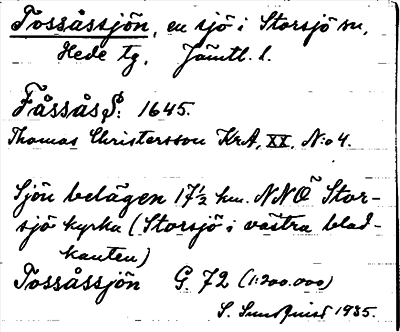 Tossåssjön, en sjö i Storsjö sn,
Hede tg, Jämtl. l.
Fåssås S: 1645.
Thomas Christersson KrA, XX, N:o 4.
Sjön belägen 17½ km. NNO Stor-
sjö kyrka (Storsjö i västra blad-
kanten)
Tossåssjön G. 72 (1:200.000)
S. 1935.